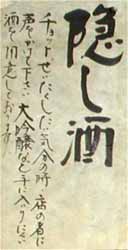 隠し酒
チョットぜいたくした気分の時、店の者に
声をかけて下さい。大吟醸など手に入りにくい
酒を用意しております。